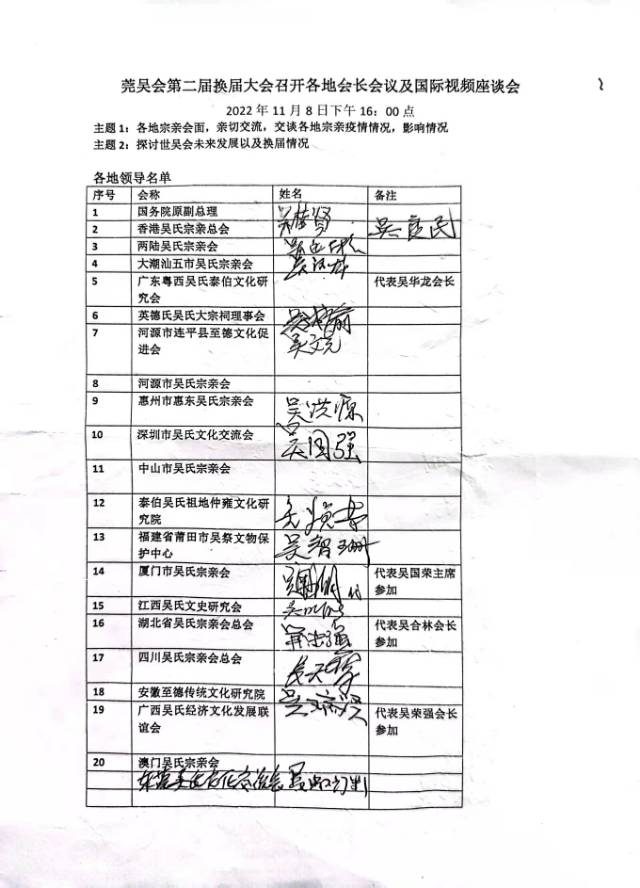 莞吴会第二届换届大会召开各地会长会议及国际视频座谈会
2022 年 11 月 8 日下午 16：00 点
主题 1：各地宗亲会面，亲切交流，交谈各地宗亲疫情情况，影响情况
主题 2：探讨世吴会未来发展以及换届情况
各地领导名单
序号 会称 姓名 备注
1 国务院原副总理
2 香港吴氏宗亲总会 吴良民
3 两陆吴氏宗亲会
4 大潮汕五市吴氏宗亲会
5 广东粤西吴氏泰伯文化研 代表吴华龙会长
究会
6 英德氏吴氏大宗祠理事会
7 河源市连平县至德文化促 吴文亮
进会
8 河源市吴氏宗亲会
9 惠州市惠东吴氏宗亲会 吴洪源
10 深圳市吴氏文化交流会 吴国强
11 中山市吴氏宗亲会
12 泰伯吴氏祖地仲雍文化研
究院
13 福建省莆田市吴祭文物保 吴智珊
护中心
14 厦门市吴氏宗亲会 代 代表吴国荣主席
参加
15 江西吴氏文史研究会
16 湖北省吴氏宗亲会总会 代表吴合林会长
参加
17 四川吴氏宗亲会总会
18 安徽至德传统文化研究院
19 广西吴氏经济文化发展联 代表吴荣强会长
谊会 参加
20 澳门吴氏宗亲会